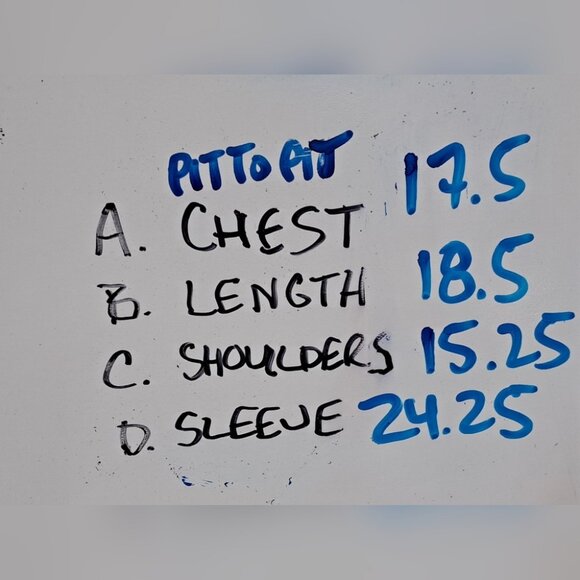 PIT TO PIT
A. CHEST 17.5
B. LENGTH 18.5
C. SHOULDERS 15.25
D. SLEEVE 24.25